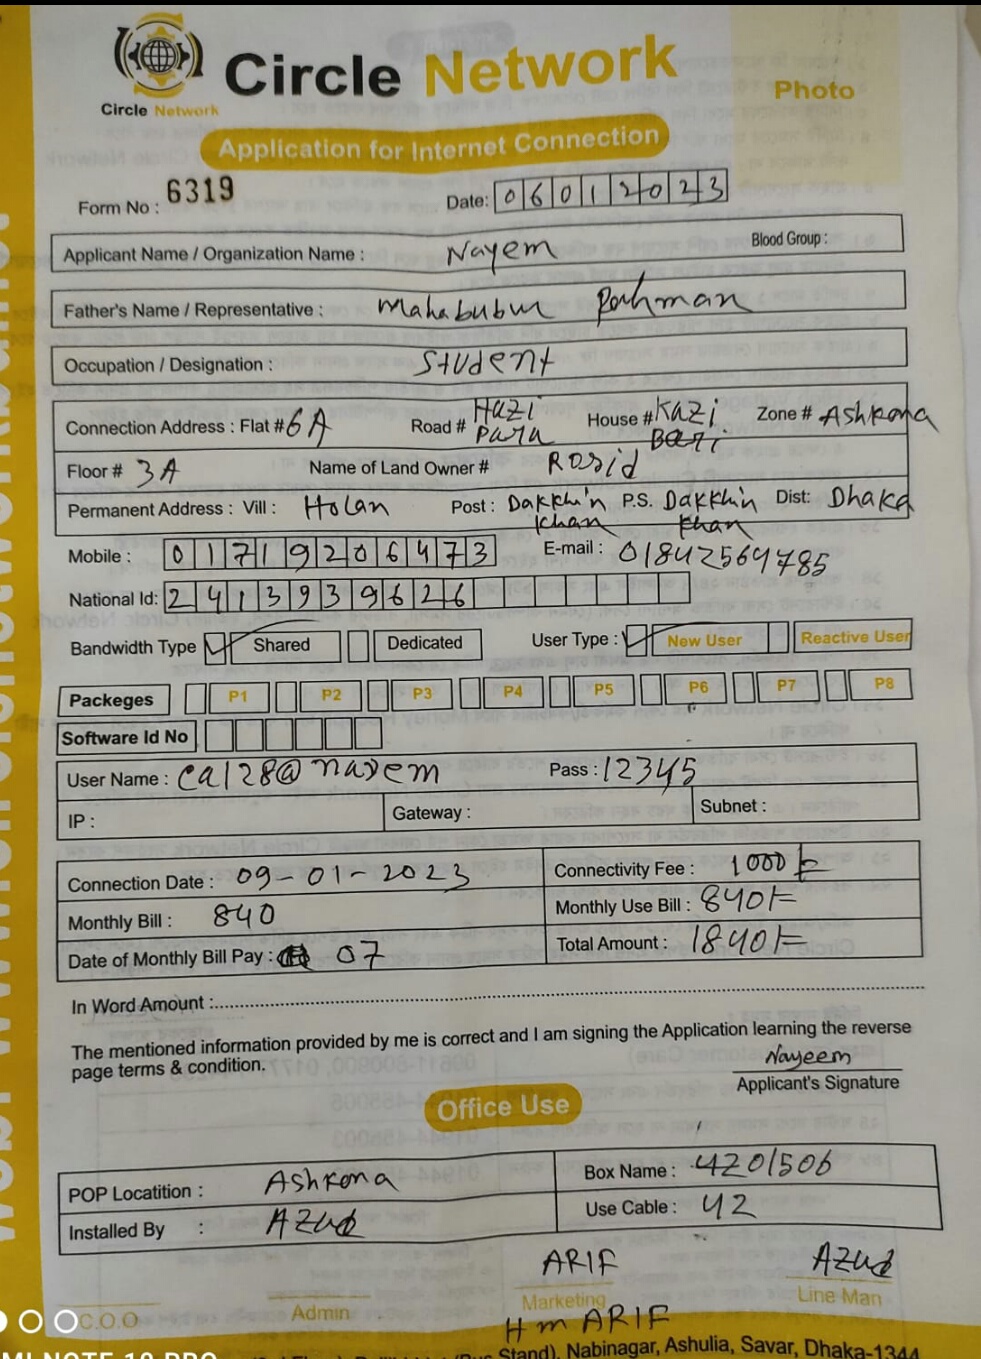 Circle Network
Circle Network
Photo
Application for Internet Connection
Form No : 6319
Date: 06012023
Applicant Name / Organization Name : Nayem Blood Group :
Father's Name / Representative : Mahabubur Rahman
Occupation / Designation : Student
Connection Address : Flat # 6A Road # Hazi Para House # Kazi Bari Zone # Ashkona
Floor # 3A Name of Land Owner # Rosid
Permanent Address : Vill : Holan Post : Dakkhin Khan P.S. Dakkhin Khan Dist: Dhaka
Mobile : 01719206473 E-mail : 01842564785
National Id: 2413939626
Bandwidth Type Shared Dedicated User Type : New User Reactive User
Packeges P1 P2 P3 P4 P5 P6 P7 P8
Software Id No
User Name : ca128@nayem Pass : 12345
IP : Gateway : Subnet :
Connection Date : 09-01-2023 Connectivity Fee : 1000/-
Monthly Bill : 840 Monthly Use Bill : 840/-
Date of Monthly Bill Pay : 07 Total Amount : 1840/-
In Word Amount :
The mentioned information provided by me is correct and I am signing the Application learning the reverse
page terms & condition.
Nayeem
Applicant's Signature
Office Use
POP Locatition : Ashkona Box Name : 4201506
Installed By : Azud Use Cable : 42
ARIF Azud
C.O.O Admin Marketing Line Man
H m ARIF
Stand), Nabinagar, Ashulia, Savar, Dhaka-1344